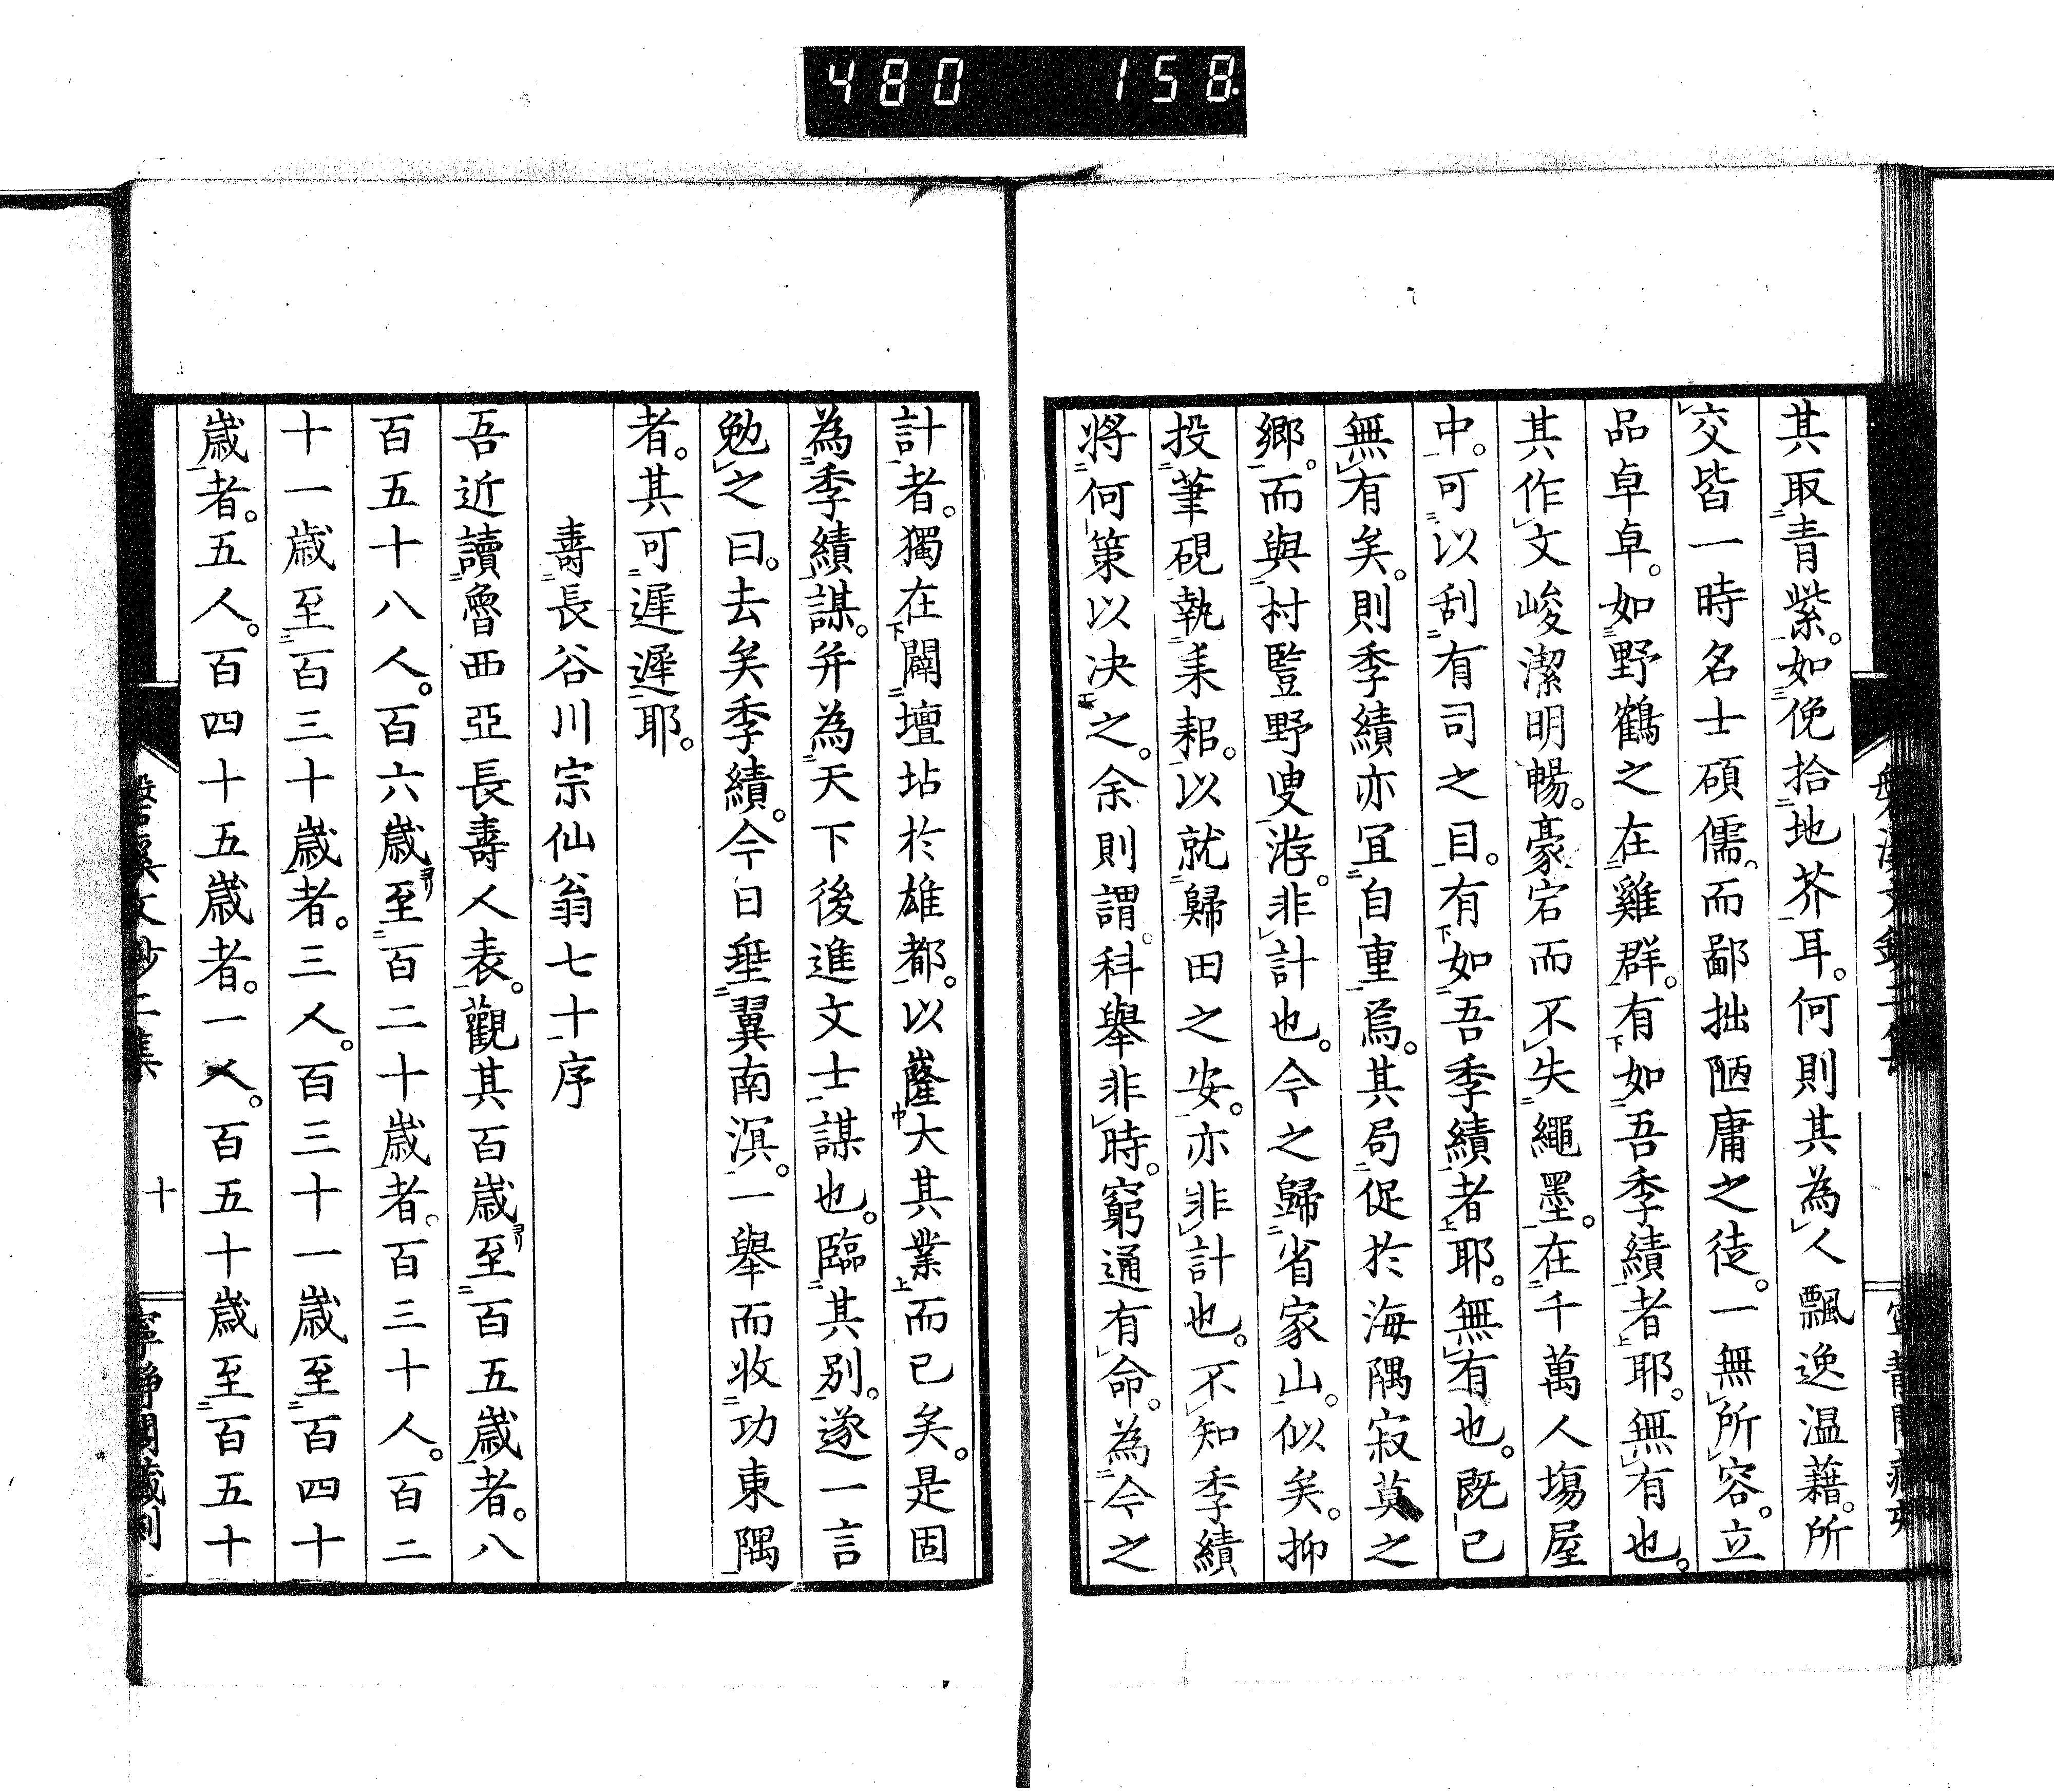 480 158
其取青紫。如俛拾地芥耳。何則其為人飄逸溫藉。所
交皆一時名士碩儒。而鄙拙陋庸之徒。一無所容。立
品卓卓。如野鶴之在雞群。有如吾季績者耶。無有也。
其作文峻潔明暢。豪宕而不失繩墨。在千萬人場屋
中。可以刮有司之目。有如吾季績者耶。無有也。既已
無有矣。則季績亦宜自重焉。其局促於海隅寂莫之
鄉。而與村豎野叟游。非計也。今之歸省家山。似矣。抑
投筆硯執耒耜。以就歸田之安。亦非計也。不知季績
將何策以決之。余則謂。科舉非時。窮通有命。為今之
計者。獨在闢壇坫於雄都。以隆大其業而已矣。是固
為季績謀。并為天下後進文士謀也。臨其別。遂一言
勉之曰。去矣季績。今日垂翼南溟。一舉而收功東隅
者。其可遲遲耶。
壽長谷川宗仙翁七十序
吾近讀魯西亞長壽人表。觀其百歲ヨリ至百五歲者。八
百五十八人。百六歲ヨリ至百二十歲者。百三十人。百二
十一歲至百三十歲者。三人。百三十一歲至百四十
歲者。五人。百四十五歲者。一人。百五十歲至百五十
磐溪文鈔二集 十 寧靜閣藏刻